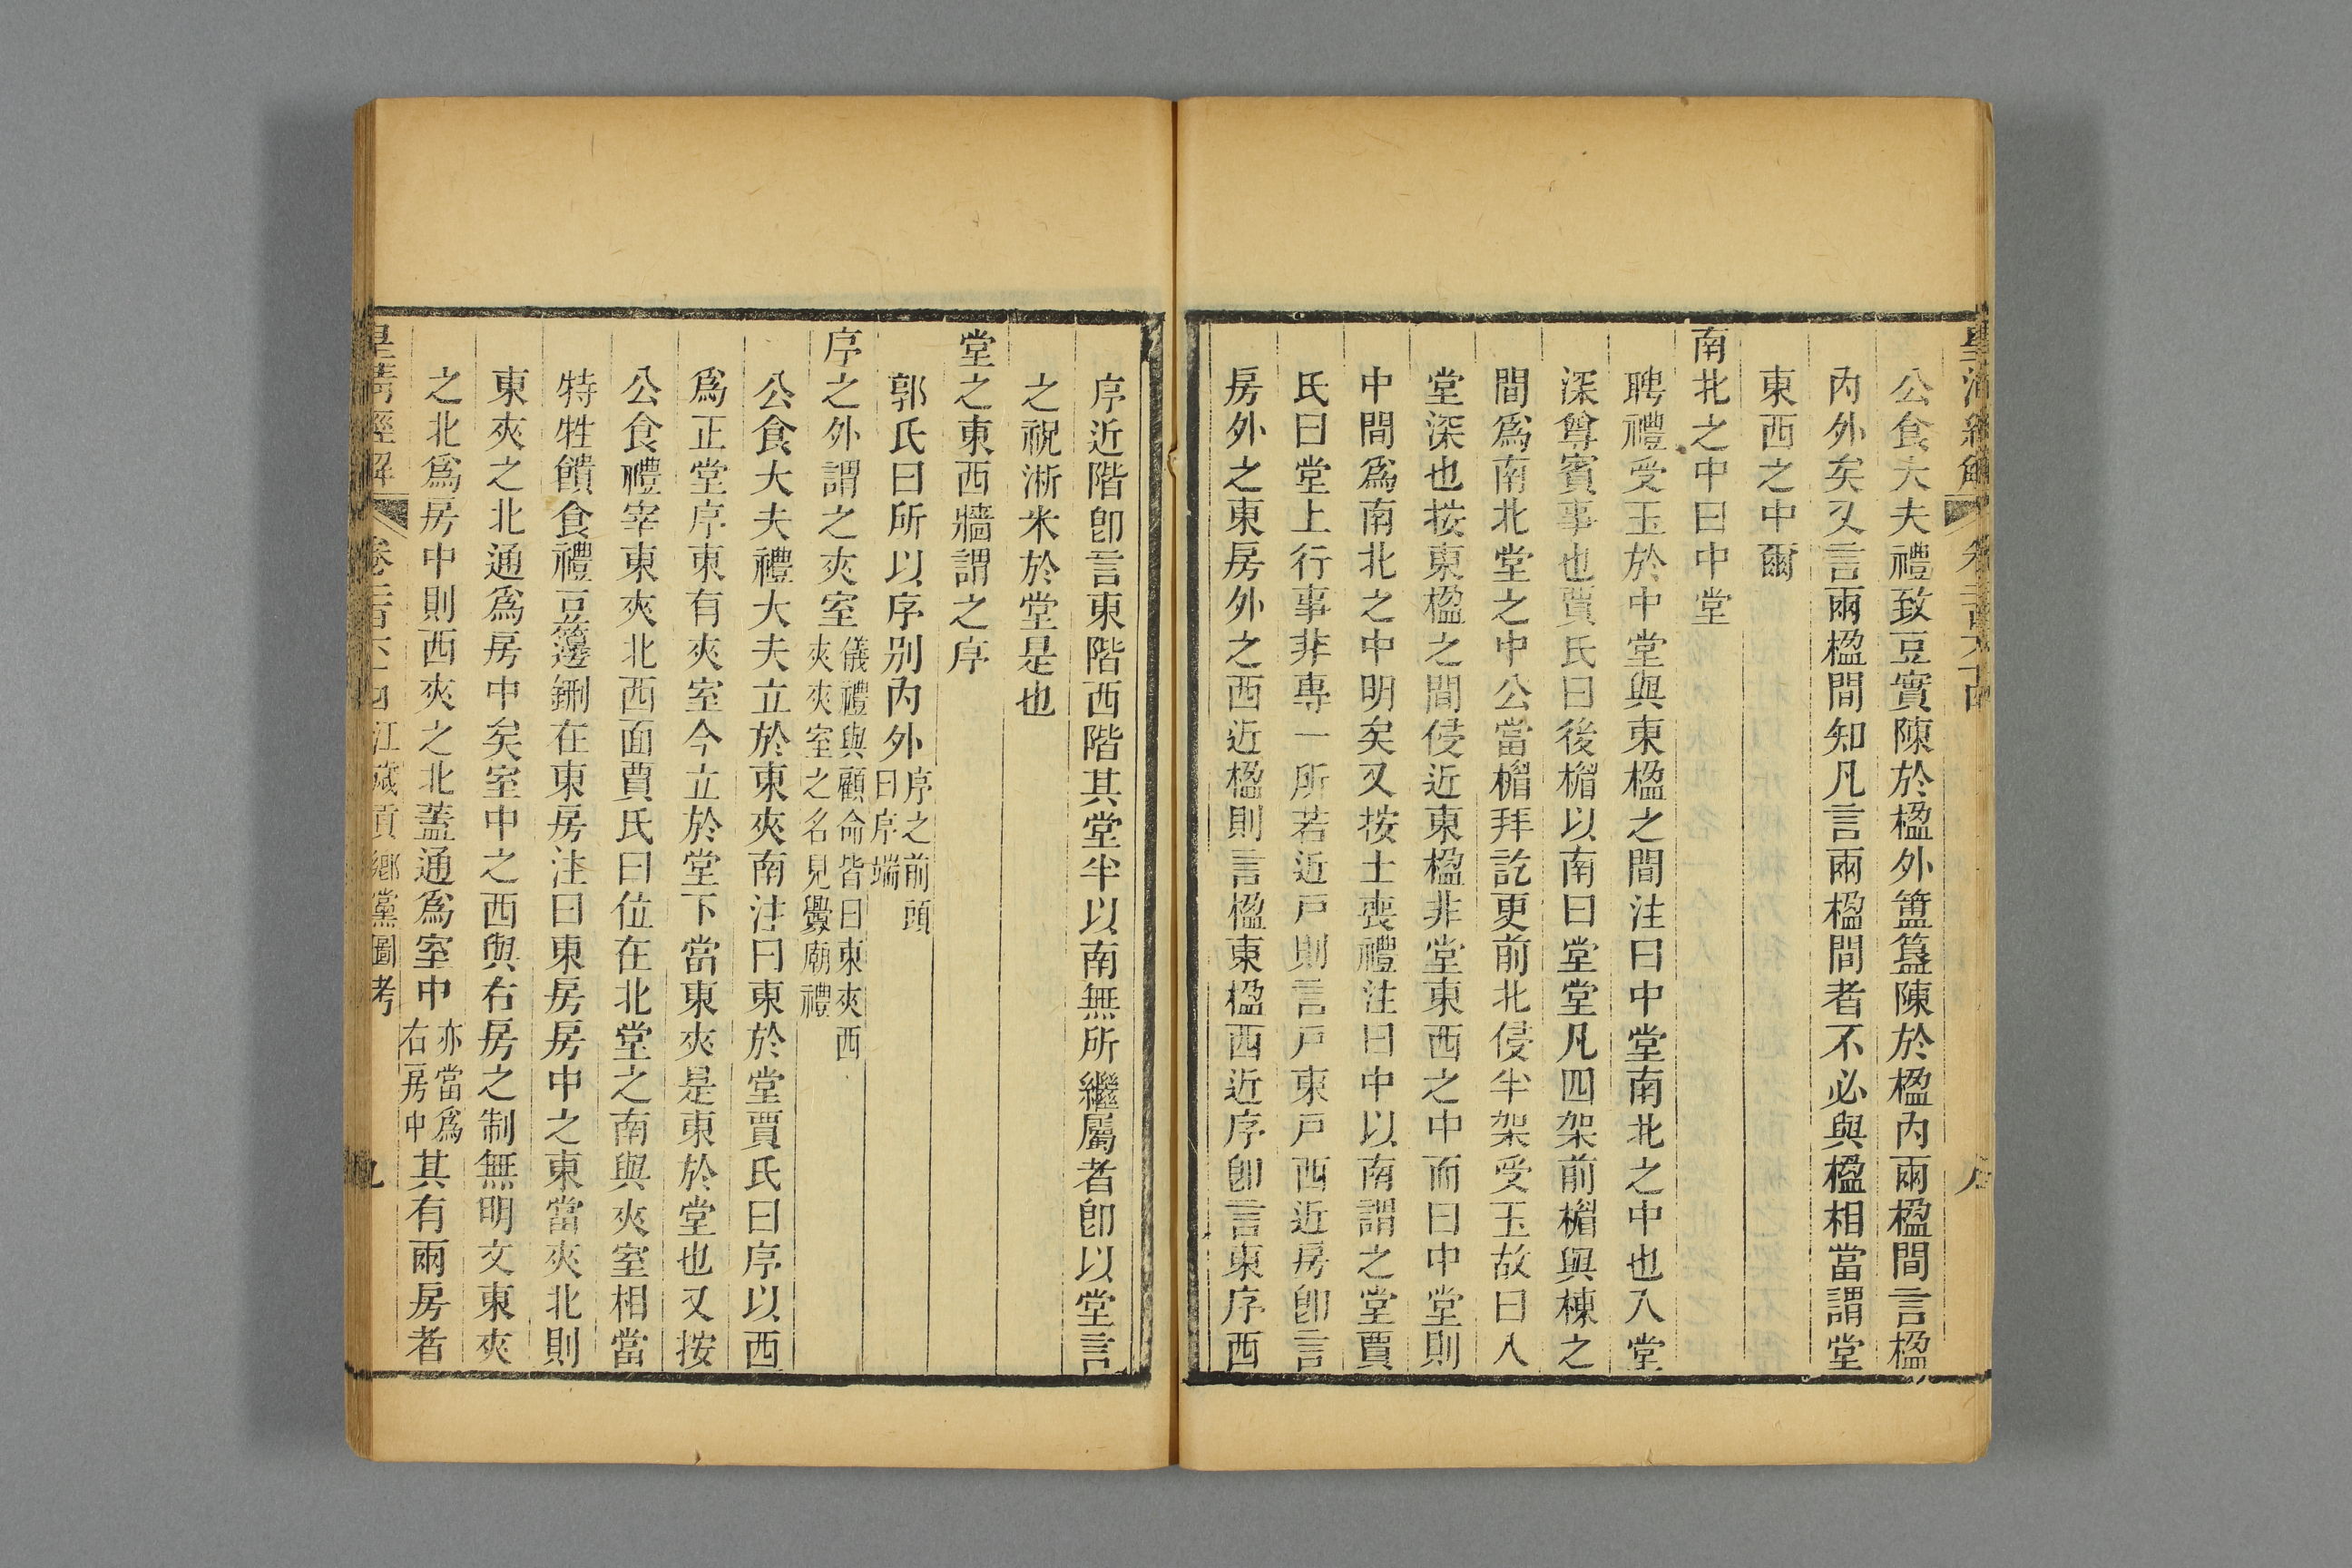 公食大夫禮致豆實陳於楹外簠簋陳於楹內兩楹間言楹
內外矣又言兩楹間知凡言兩楹間者不必與楹相當謂堂
東西之中爾
南北之中曰中堂
聘禮受玉於中堂與東楹之間注曰中堂南北之中也入堂
深尊賓事也賈氏曰後楣以南曰堂堂凡四架前楣與棟之
間爲南北堂之中公當楣拜訖更前北侵半架受玉故曰入
堂深也按東楹之間侵近東楹非堂東西之中而曰中堂則
中間爲南北之中明矣又按士喪禮注曰中以南謂之堂賈
氏曰堂上行事非專一所若近戸則言戸東戸西近房卽言
房外之東房外之西近楹則言楹東楹西近序卽言東序西
序近階卽言東階西階其堂半以南無所繼屬者卽以堂言
之祝淅米於堂是也
堂之東西牆謂之序
郭氏曰所以序别內外序之前頭曰序端
序之外謂之夾室儀禮與顧命皆曰東夾西夾夾室之名見釁廟禮
公食大夫禮大夫立於東夾南注曰東於堂賈氏曰序以西
爲正堂序東有夾室今立於堂下當東夾是東於堂也又按
公食禮宰東夾北西面賈氏曰位在北堂之南與夾室相當
特牲饋食禮豆籩鉶在東房注曰東房房中之東當夾北則
東夾之北通爲房中矣室中之西與右房之制無明文東夾
之北爲房中則西夾之北蓋通爲室中亦當爲右房中其有兩房者
皇清經解 卷二百六十四 江永貢鄉黨圖考 九